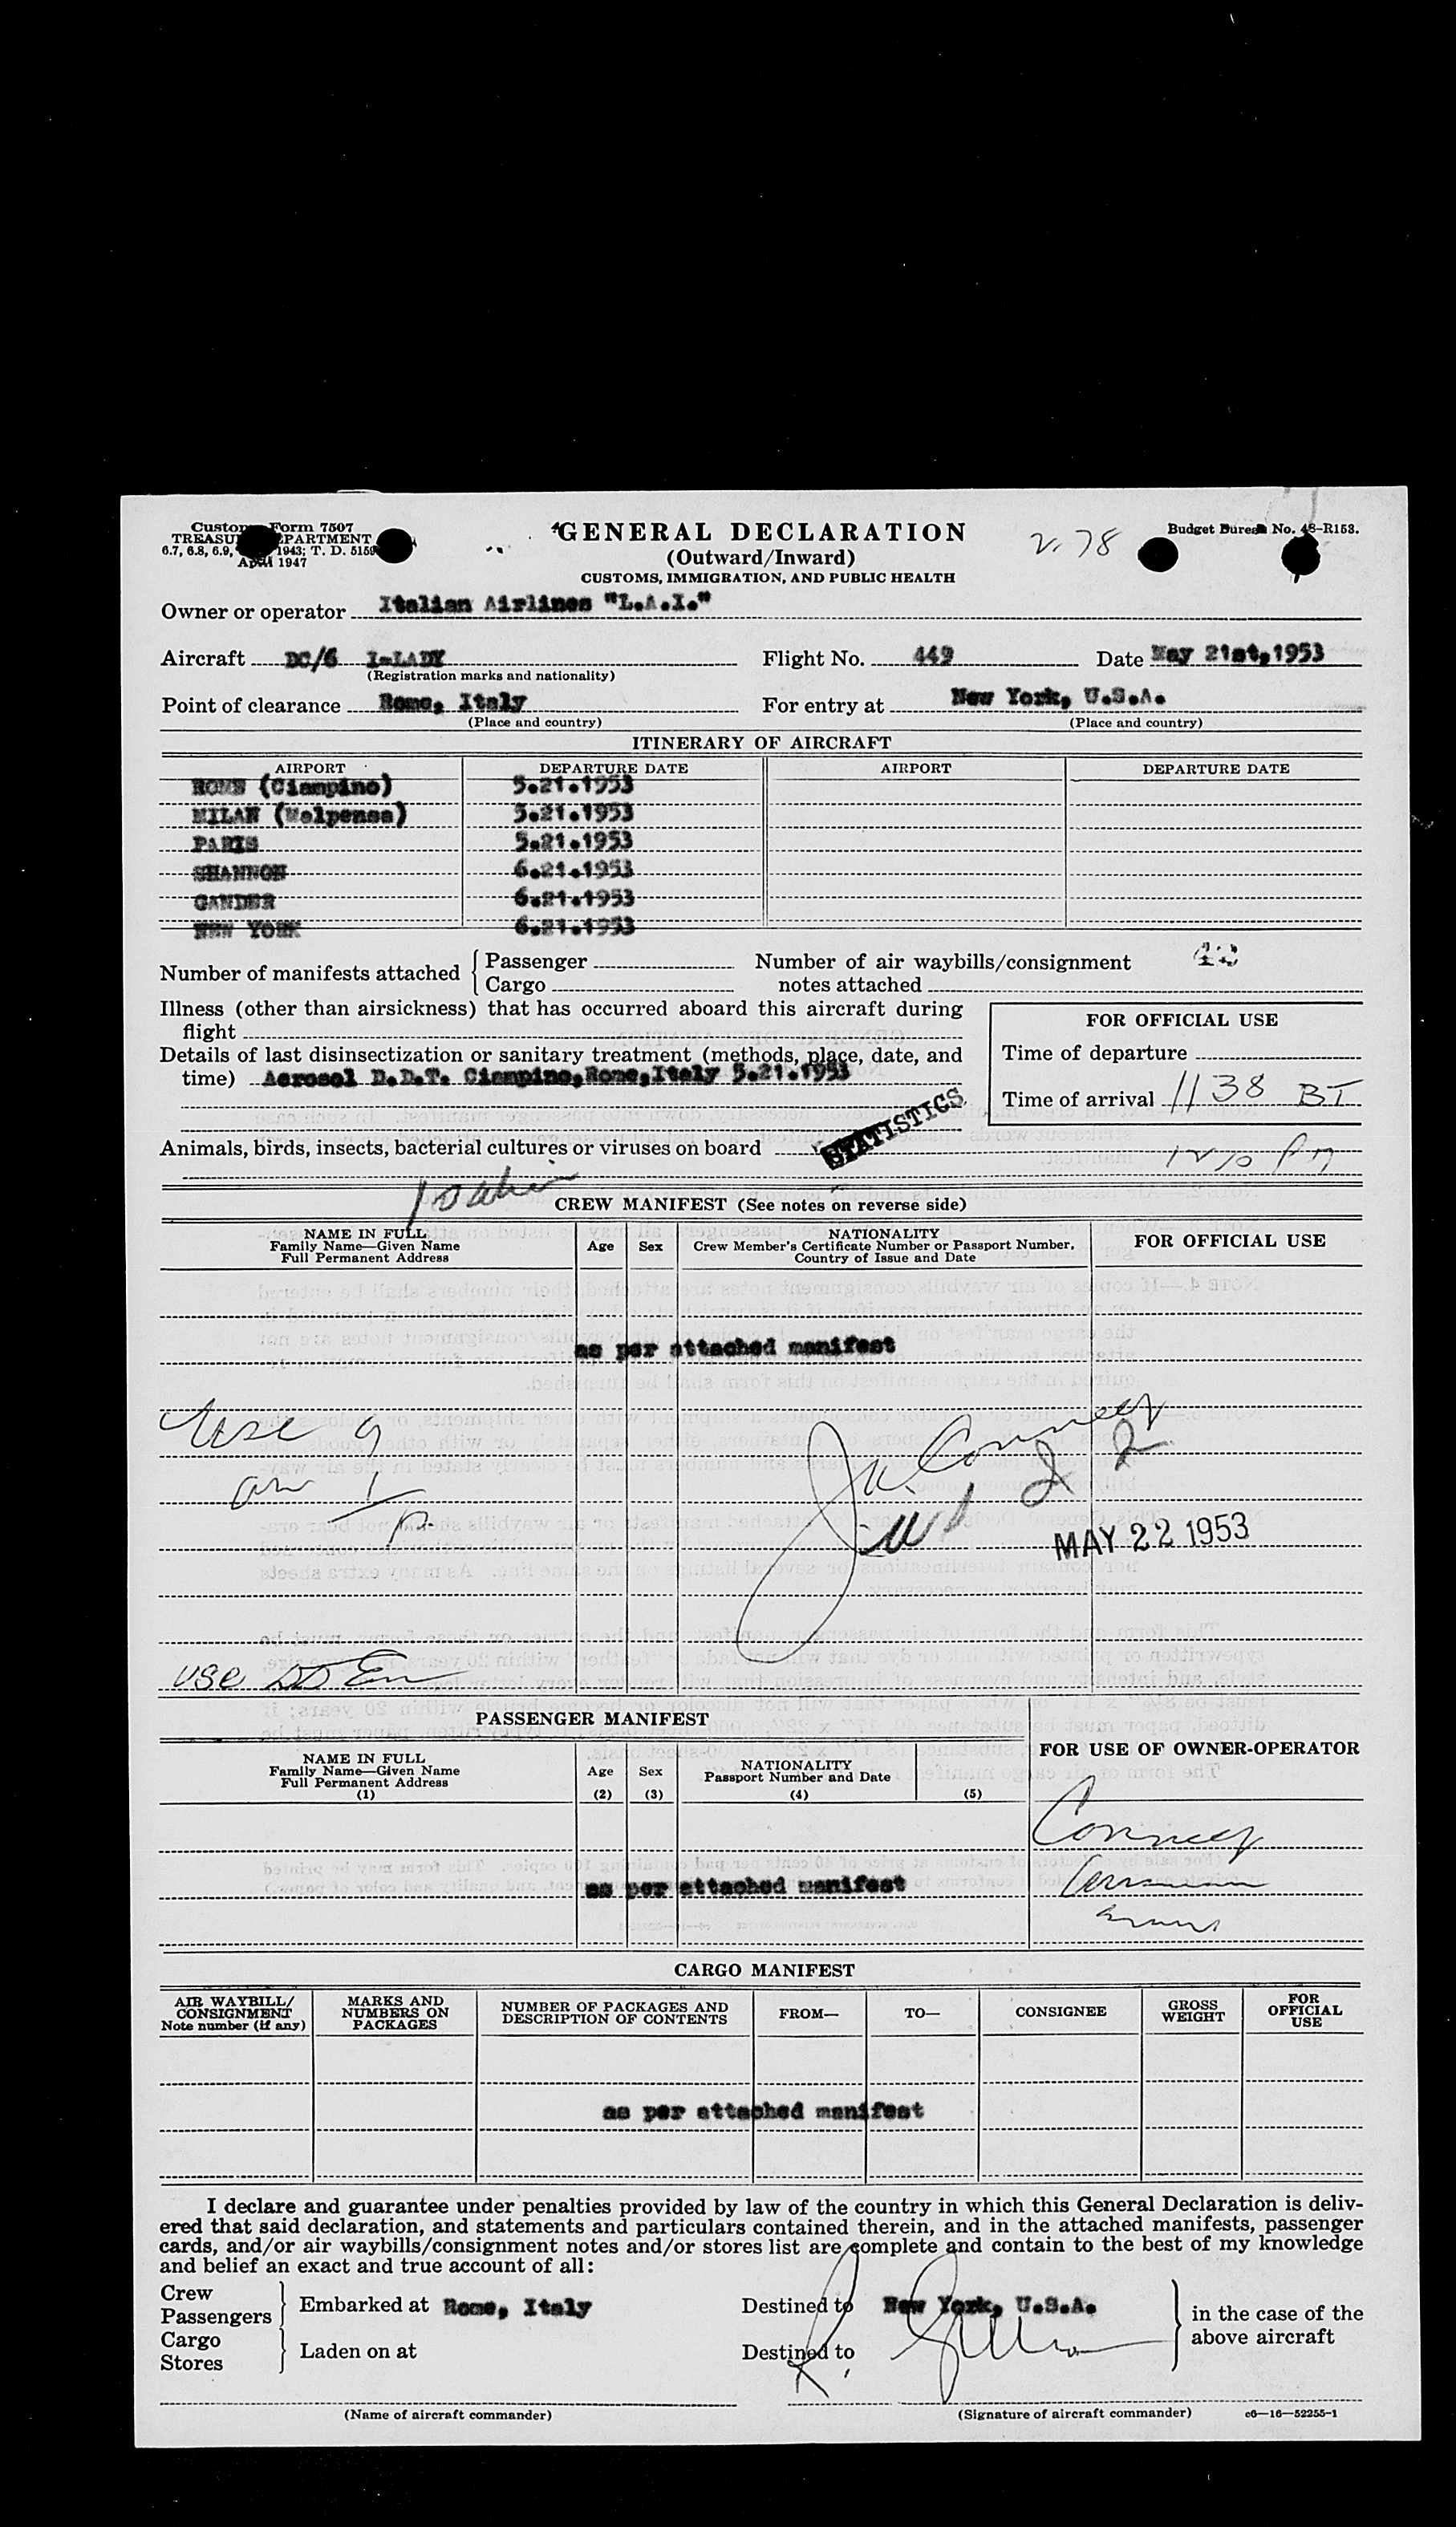 Customs Form 7507
TREASURY DEPARTMENT
6.7, 6.8, 6.9, 1943; T. D. 5159
April 1947
GENERAL DECLARATION
(Outward/Inward)
CUSTOMS, IMMIGRATION, AND PUBLIC HEALTH
Budget Bureau No. 48-R153.
Owner or operator Italian Airlines "L.A.I."
Aircraft DC/6 I-LADY Flight No. 449 Date May 21st, 1953
(Registration marks and nationality)
Point of clearance Rome, Italy For entry at New York, U.S.A.
(Place and country) (Place and country)
ITINERARY OF AIRCRAFT
AIRPORT DEPARTURE DATE AIRPORT DEPARTURE DATE
ROME (Ciampino) 5.21.1953
MILAN (Malpensa) 5.21.1953
PARIS 5.21.1953
SHANNON 6.21.1953
GANDER 6.21.1953
NEW YORK 6.21.1953
Number of manifests attached Passenger Number of air waybills/consignment
Cargo notes attached
Illness (other than airsickness) that has occurred aboard this aircraft during
flight
Details of last disinsectization or sanitary treatment (methods, place, date, and
time) Aerosol D.D.T. Ciampino,Rome,Italy 5.21.1953
FOR OFFICIAL USE
Time of departure
Time of arrival 1138 BT
STATISTICS
Animals, birds, insects, bacterial cultures or viruses on board
CREW MANIFEST (See notes on reverse side)
NAME IN FULL
Family Name—Given Name
Full Permanent Address
Age Sex
NATIONALITY
Crew Member's Certificate Number or Passport Number,
Country of Issue and Date
FOR OFFICIAL USE
as per attached manifest
MAY 22 1953
use
PASSENGER MANIFEST
FOR USE OF OWNER-OPERATOR
NAME IN FULL
Family Name—Given Name
Full Permanent Address
(1)
Age
(2)
Sex
(3)
NATIONALITY
Passport Number and Date
(4) (5)
as per attached manifest
CARGO MANIFEST
AIR WAYBILL/
CONSIGNMENT
Note number (if any)
MARKS AND
NUMBERS ON
PACKAGES
NUMBER OF PACKAGES AND
DESCRIPTION OF CONTENTS
FROM—
TO—
CONSIGNEE
GROSS
WEIGHT
FOR
OFFICIAL
USE
as per attached manifest
I declare and guarantee under penalties provided by law of the country in which this General Declaration is deliv-
ered that said declaration, and statements and particulars contained therein, and in the attached manifests, passenger
cards, and/or air waybills/consignment notes and/or stores list are complete and contain to the best of my knowledge
and belief an exact and true account of all:
Crew
Passengers Embarked at Rome, Italy Destined to New York, U.S.A.
Cargo
Stores Laden on at Destined to
in the case of the
above aircraft
(Name of aircraft commander) (Signature of aircraft commander) c6—16—52255-1